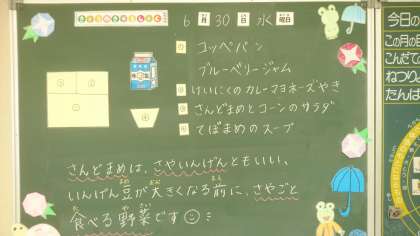 きょうのきゅうしょく
6月30日 水曜日
コッペパン
ブルーベリージャム
けいにくのカレーマヨネーズやき
さんどまめとコーンのサラダ
てぼまめのスープ
さんどまめは、さやいんげんともいい、
いんげん豆が大きくなる前に、さやごと
食べる野菜です
今日の
この月の
こんだて
ねつり
たんぱ